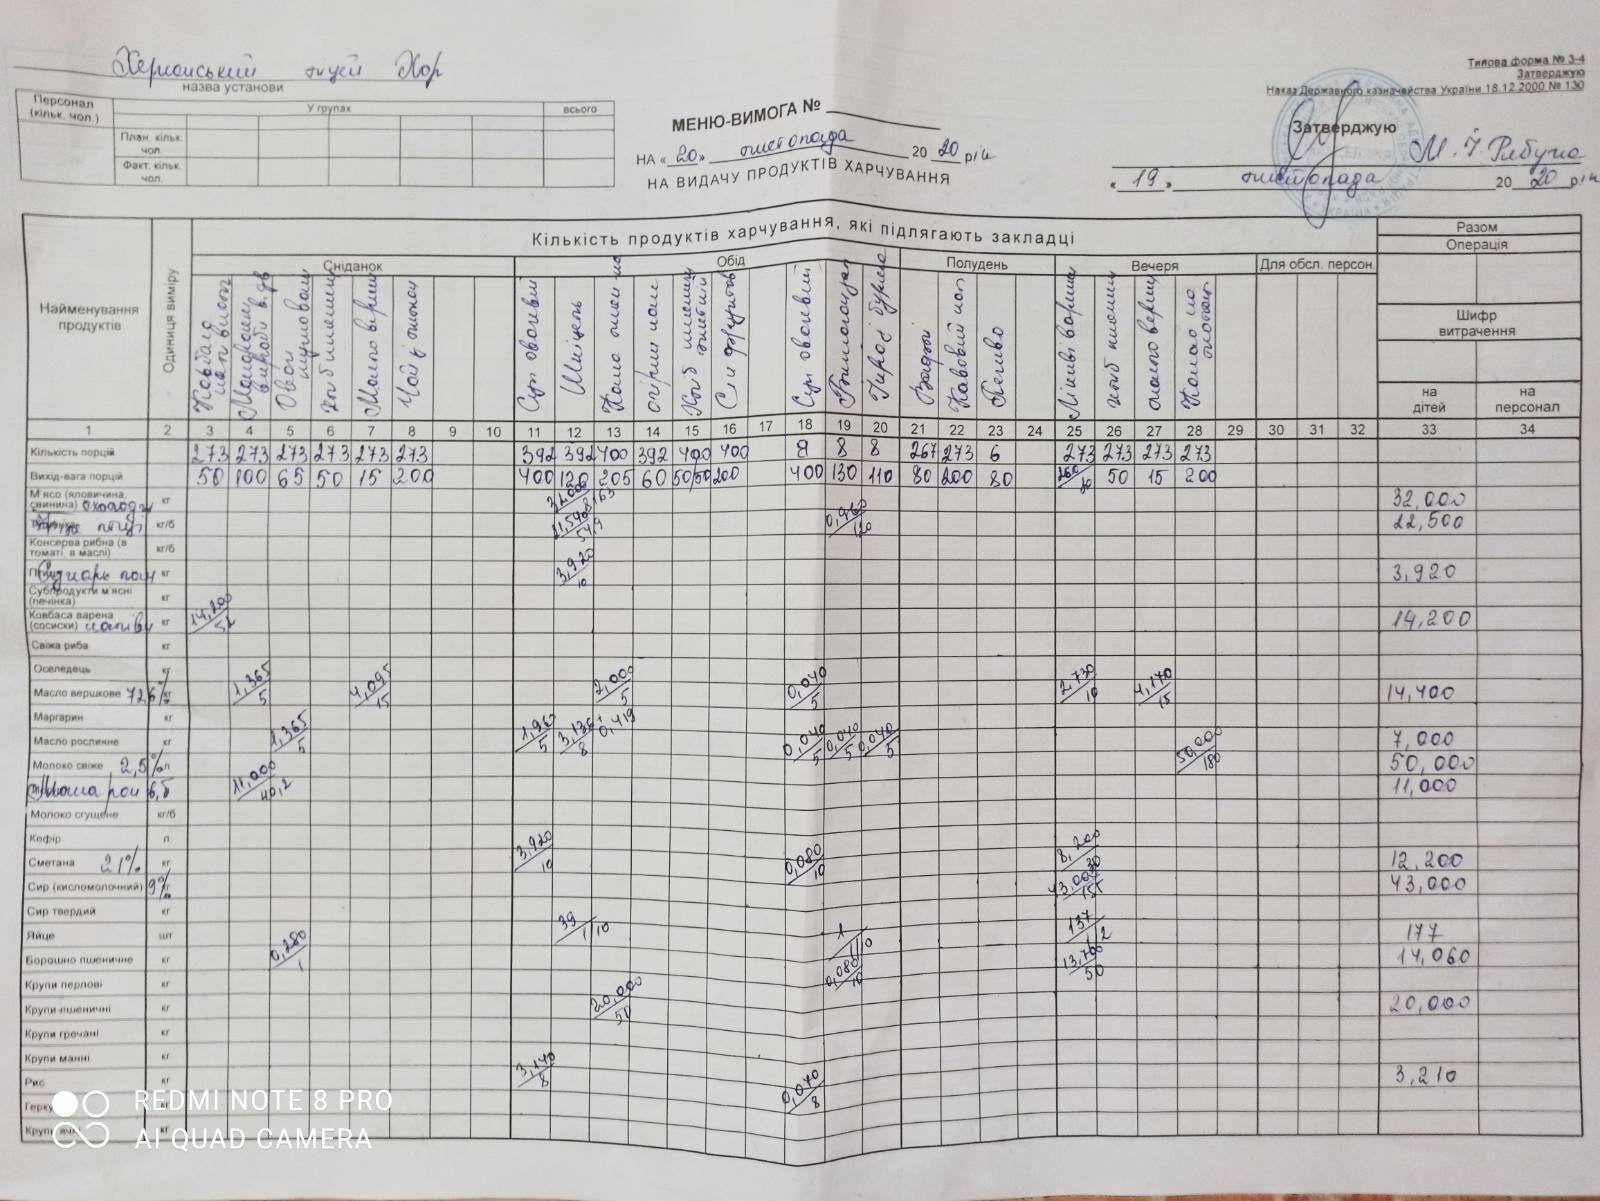 Херсонський ліцей ХОР
назва установи
Типова форма № 3-4
Затверджую
Наказ Державного казначейства України 18.12.2000 № 130
Персонал (кільк. чол.) У групах всього
План. кільк. чол.
Факт. кільк. чол.
МЕНЮ-ВИМОГА №
НА «20» листопада 2020 рік
НА ВИДАЧУ ПРОДУКТІВ ХАРЧУВАННЯ
Затверджую
М. Й. Рябуха
«19» листопада 2020 рік
Найменування продуктів
Одиниця виміру
Кількість продуктів харчування, які підлягають закладці
Разом
Операція
Сніданок Обід Полудень Вечеря Для обсл. персон
Шифр витрачення
на дітей на персонал
Ковбаса
Овочі
Хліб пшениц
Масло вершк
Суп овочевий
Шніцель
Каша
Огірки сол
Хліб
Суп овочевий
Пиріг
Какао
1 2 3 4 5 6 7 8 9 10 11 12 13 14 15 16 17 18 19 20 21 22 23 24 25 26 27 28 29 30 31 32 33 34
Кількість порцій 273 273 273 273 273 273 392 392 400 392 400 400 8 8 8 267 273 6 273 273 273 273
Вихід-вага порцій 50 100 65 50 15 200 400 120 205 60 50/50 200 400 130 110 80 200 80 50 15 200
М'ясо (яловичина, свинина) охолодж кг 32,000
кг/б 0,960/120 22,500
Консерва рибна (в томаті, в маслі) кг/б
Сухарь пан кг 3,920/10 3,920
Субпродукти м'ясні (печінка) кг
Ковбаса варена (сосиски) кг 14,200/52 14,200
Свіжа риба кг
Оселедець кг
Масло вершкове 72,6% кг 1,365/5 4,095/15 2,000/5 0,040/5 2,730/10 4,170/15 14,400
Маргарин кг
Масло рослинне кг 1,365/5 1,960/5 3,136/8 + 0,419 0,040/5 0,040/5 0,040/5 7,000
Молоко свіже 2,5% л 50,000/180 50,000
11,000/40,2 11,000
Молоко сгущене кг/б
Кефір л
Сметана 21% кг 3,920/10 0,080/10 8,200/30 12,200
Сир (кисломолочний) 9% кг 43,000/155 43,000
Сир твердий кг
Яйце шт 39 1/10 1 1/10 137 1/2 177
Борошно пшеничне кг 0,280/1 0,080/10 13,700/50 14,060
Крупи перлові кг
Крупи пшеничні кг 20,000/50 20,000
Крупи гречані кг
Крупи манні кг
Рис кг 3,140/8 0,070/8 3,210
Герку кг
Крупи ячн кг
REDMI NOTE 8 PRO
AI QUAD CAMERA